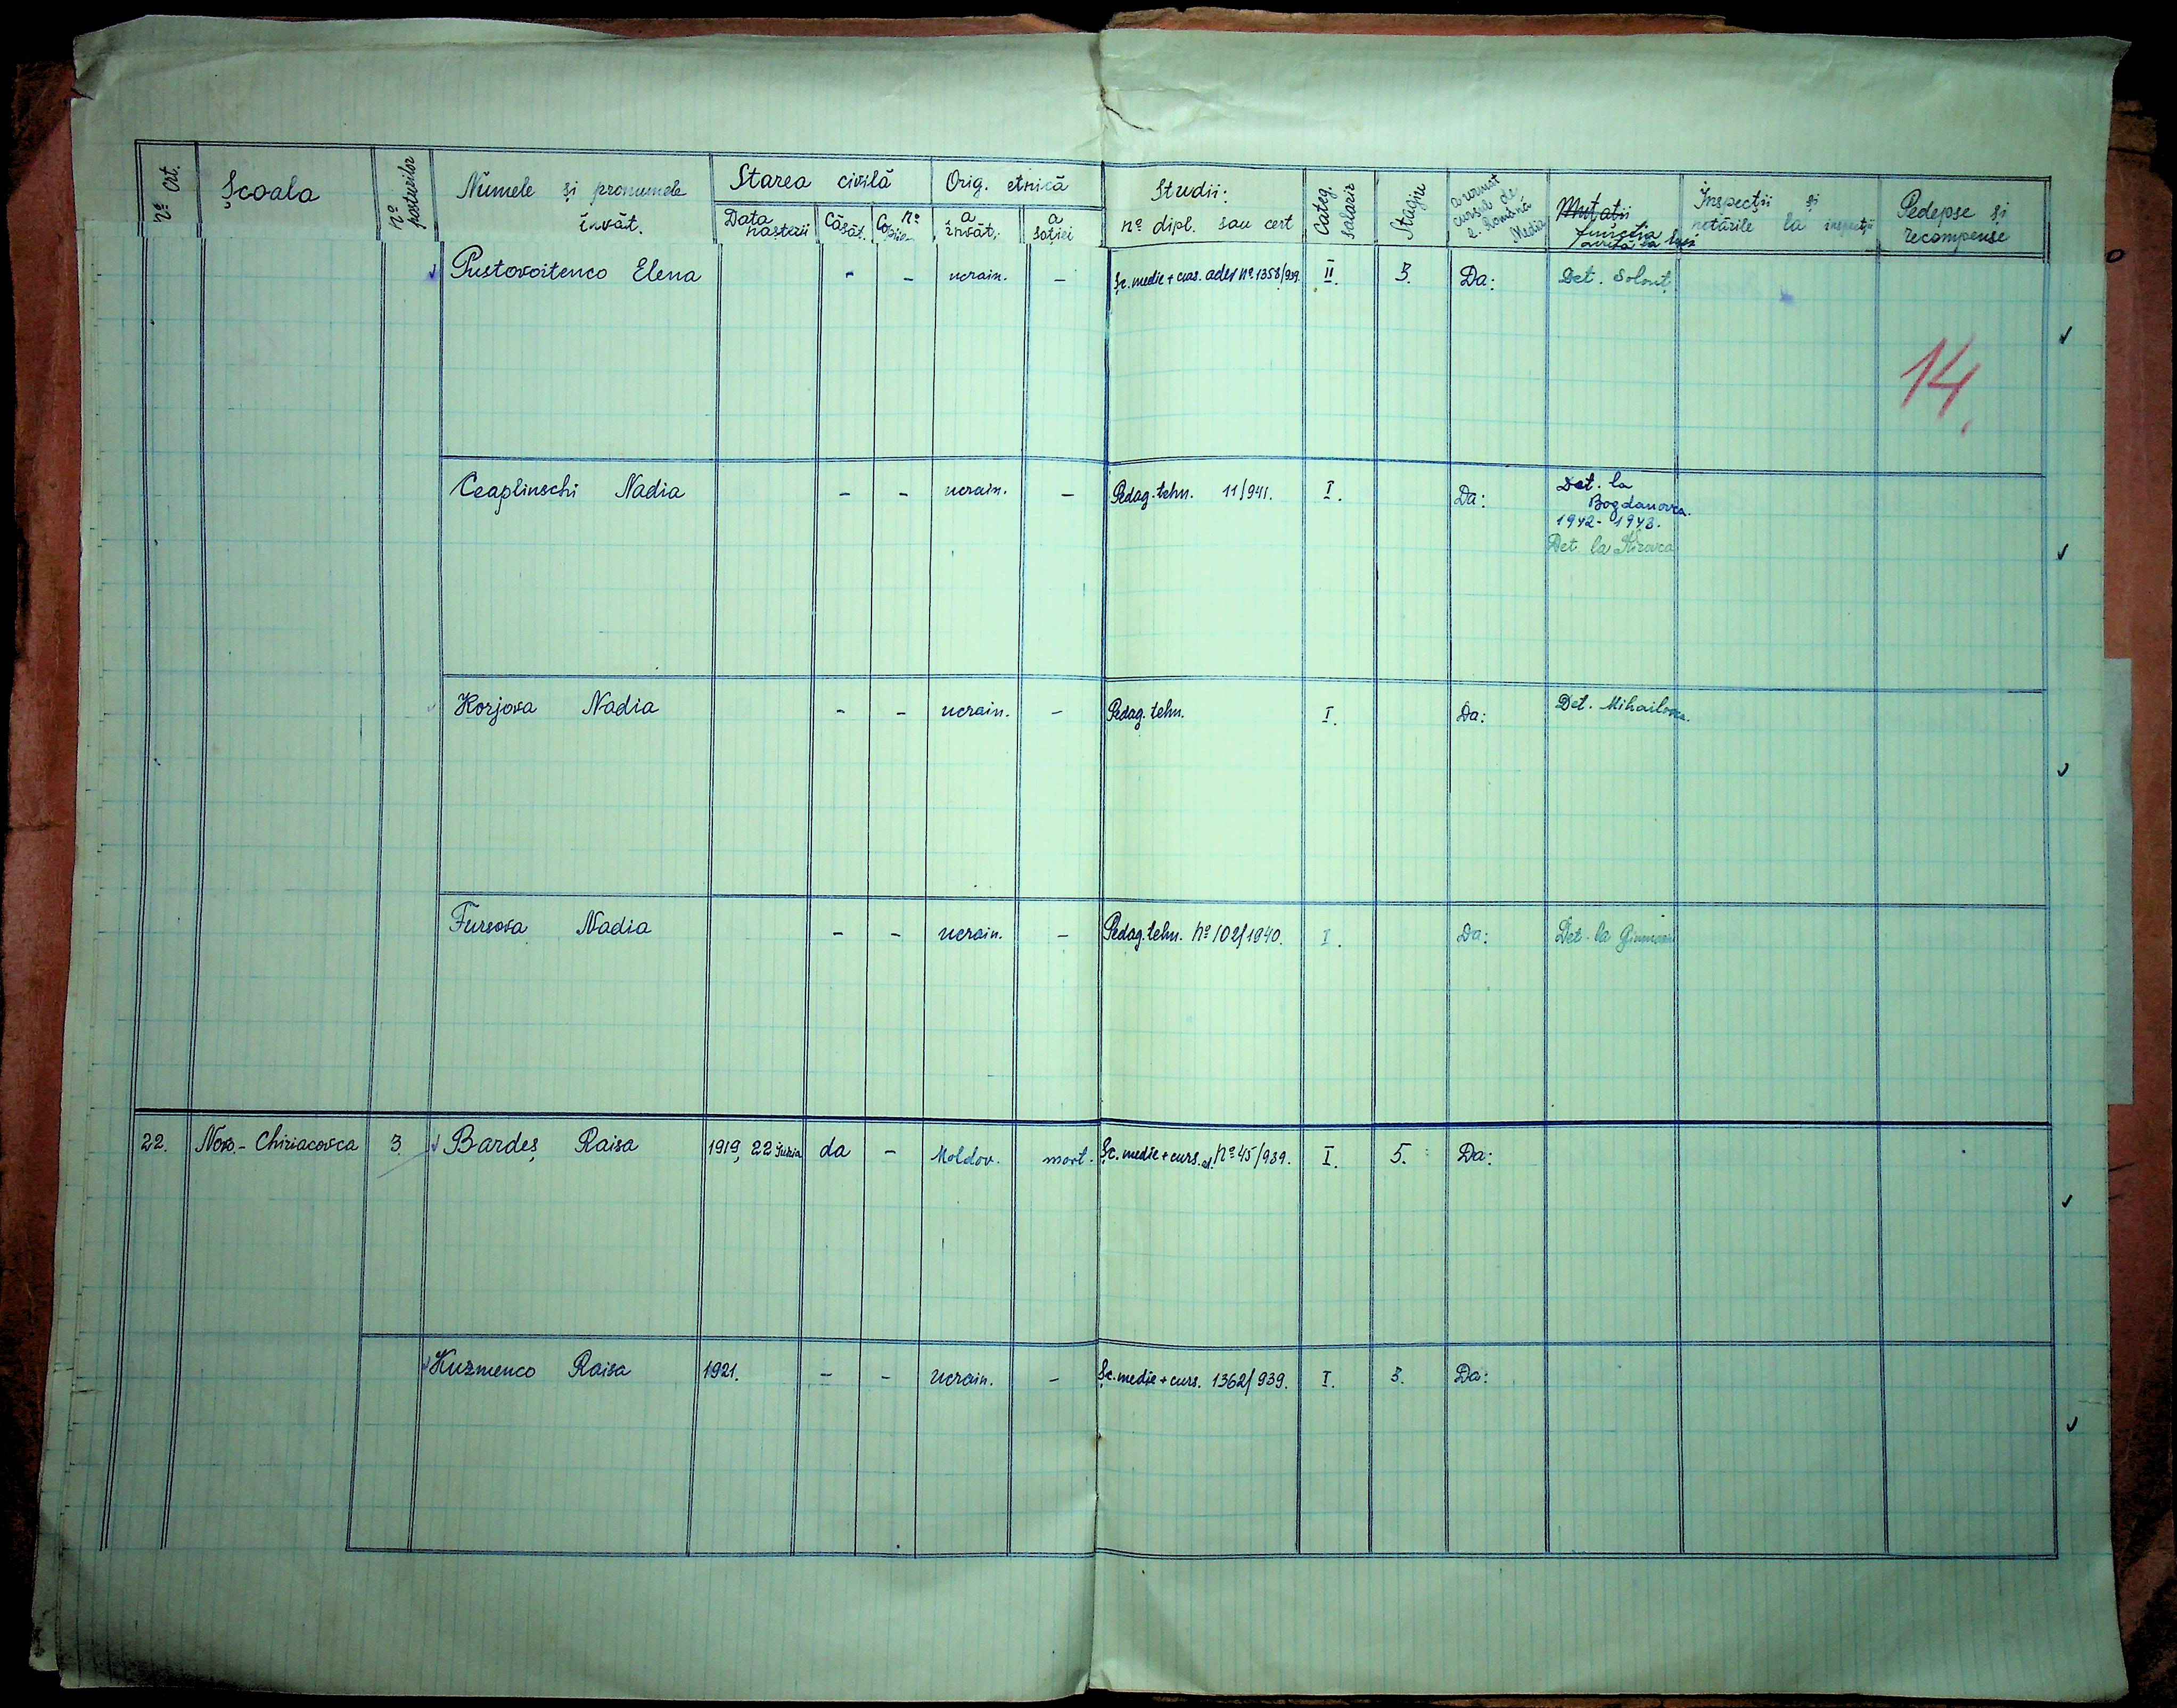 Nº crt. Școala Nº posturilor Numele și pronumele învăt. Starea civilă Orig. etnică Studii: nº dipl. sau cert Categ. salariz Stagiu a urmat cursul de l. Română Media Mutatii funcția Inspecții și notările la inspecții Pedepse și recompense
Data nasterii Căsăt. Nº Copiilor a învăt. a soției
Pustovoitenco Elena - - ucrain. - Șc. medie + curs. Nº 1358/939. II. 3. Da: Det. Solont
14.
Ceaplinschi Nadia - - ucrain. - Pedag. tehn. 11/941. I. Da: Det. la
Bogdanovca.
1942-1943.
Det. la
Korjova Nadia - - ucrain. - Pedag. tehn. I. Da: Det. Mihailovca.
Fursova Nadia - - ucrain. - Pedag. tehn. Nº 102/1940. I. Da: Det. la
22. Novo-Chiriacovca 3 Bardeș Raisa 1919, 22 Iunia da - Moldov. mort. Șc. medie + curs. Nº 45/939. I. 5. Da:
Kuzmenco Raisa 1921. - - ucrain. - Șc. medie + curs. 1362/939. I. 3. Da: